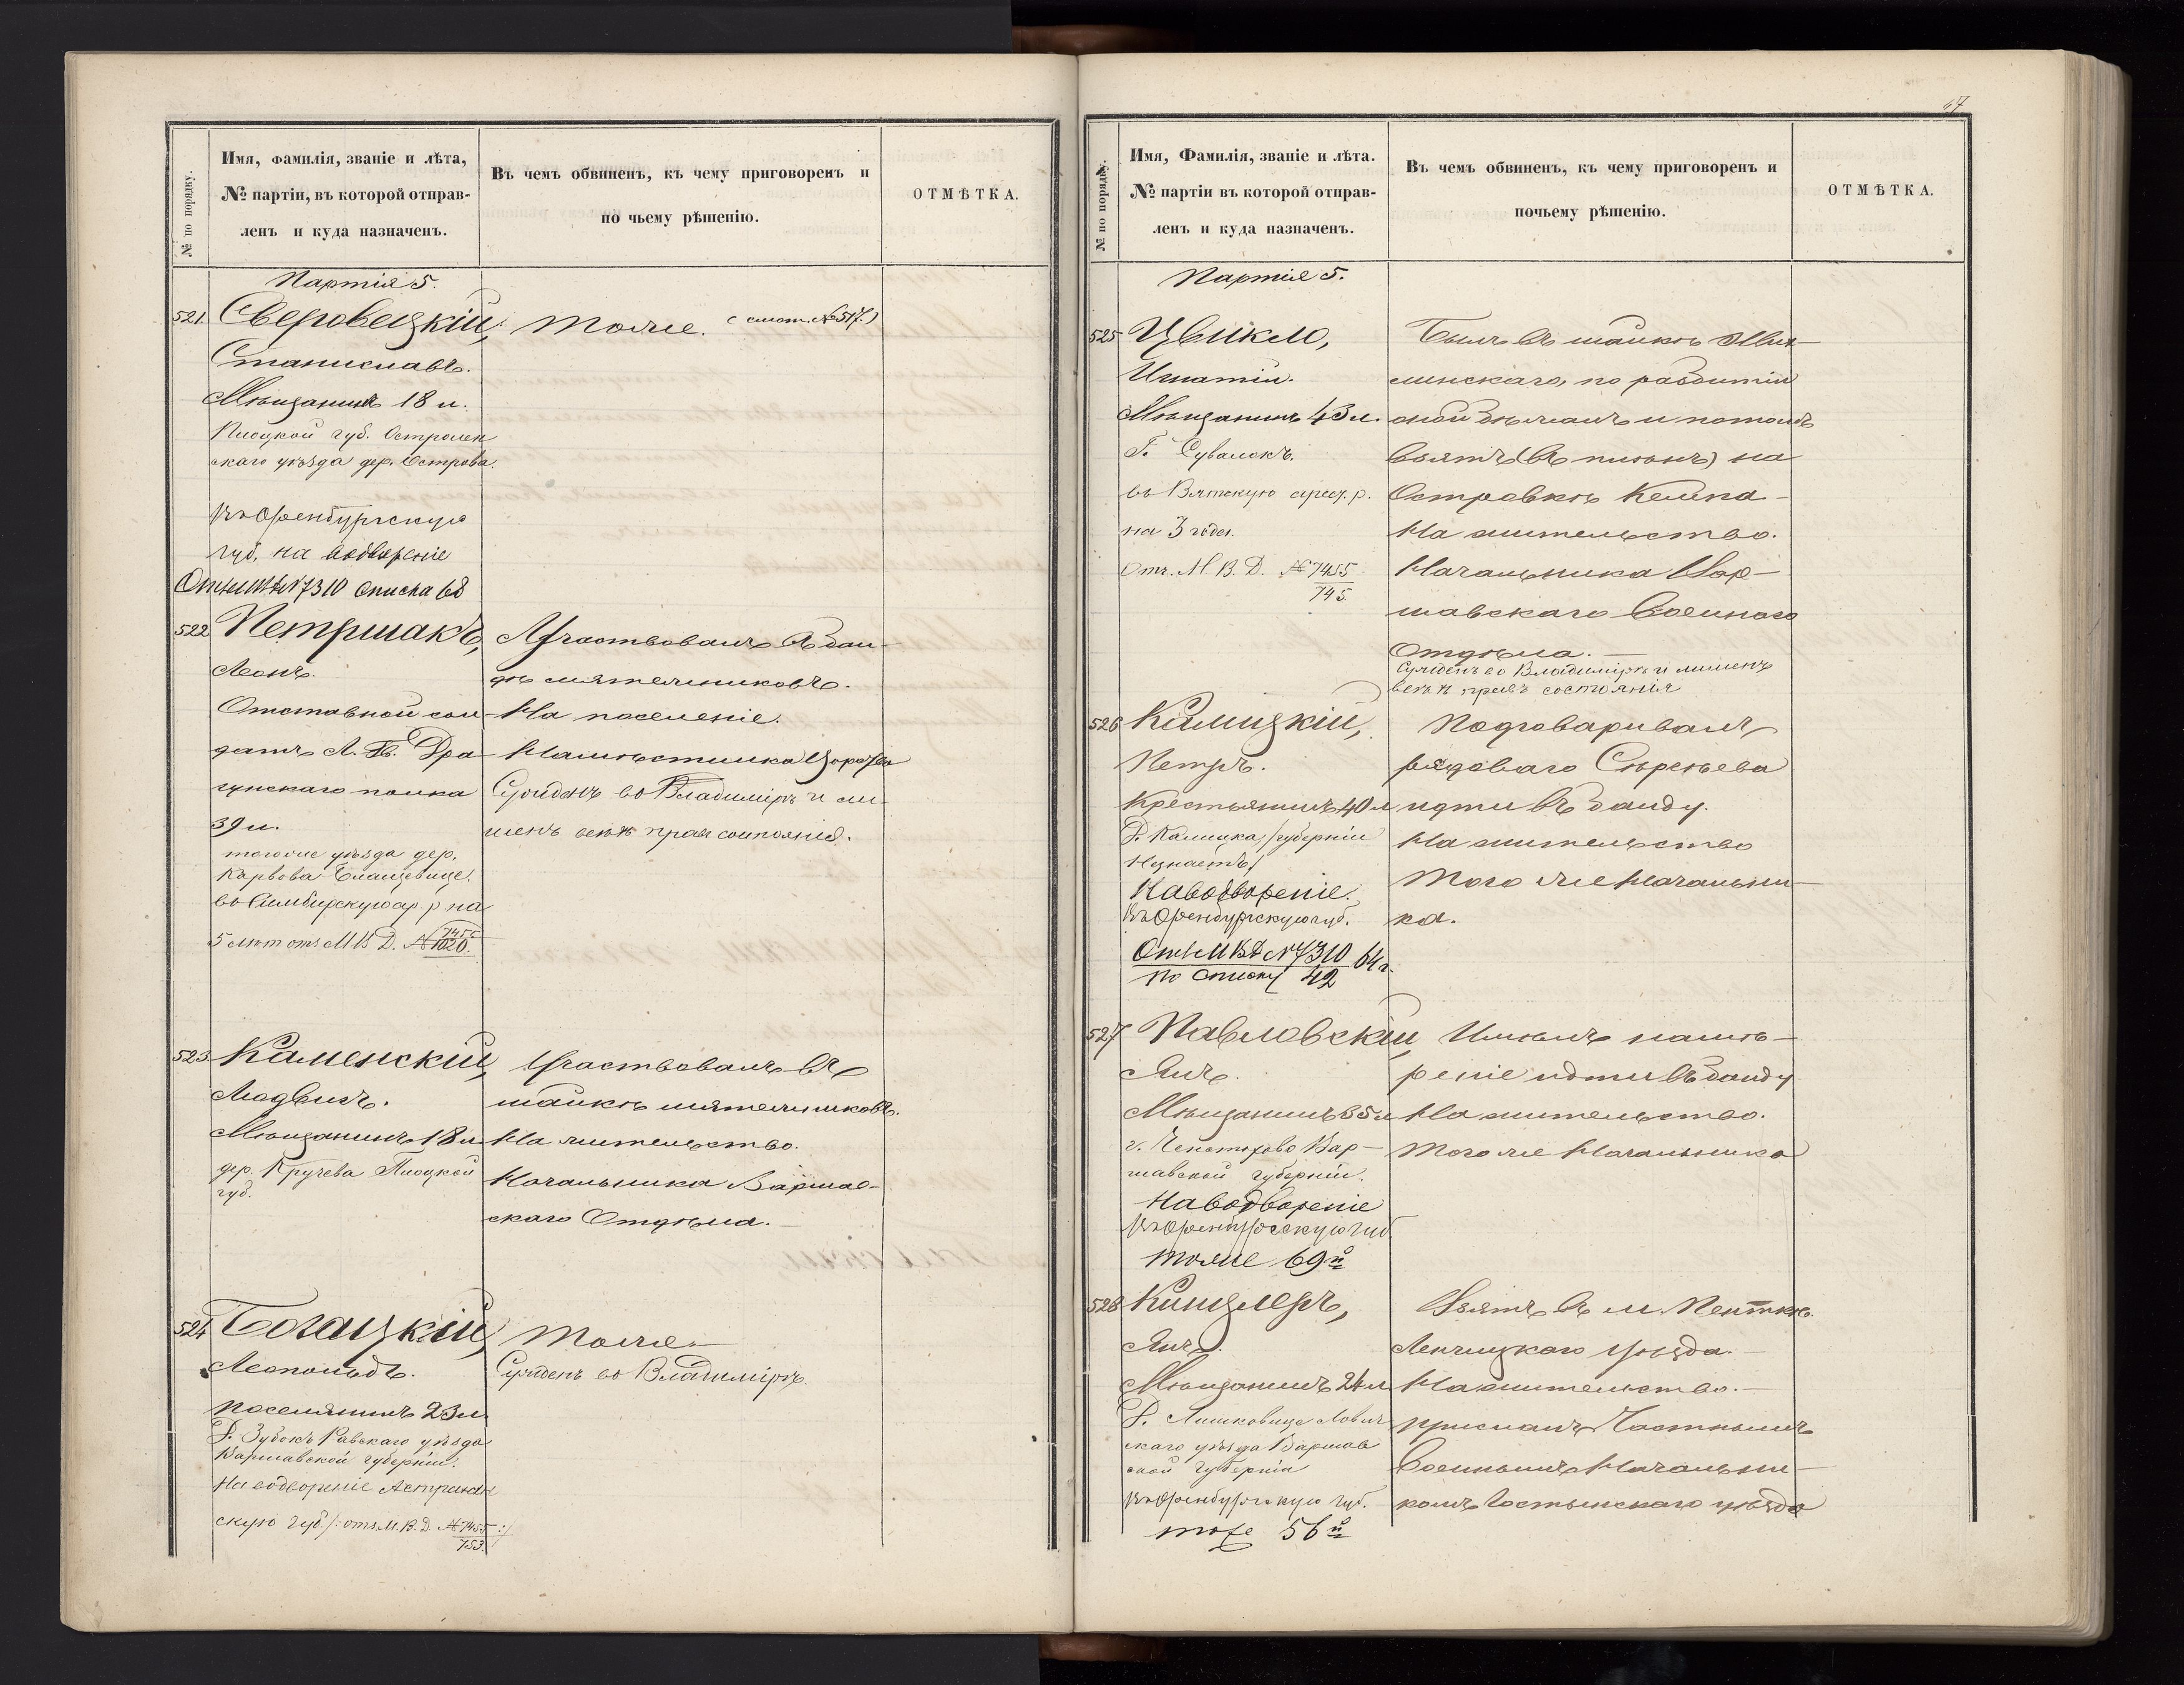 № по порядку.
Имя, фамилія, званіе и лѣта,
№ партіи, въ которой отправ-
ленъ и куда назначенъ.
Въ чемъ обвиненъ, къ чему приговоренъ и
по чьему рѣшенію.
ОТМѢТКА.
Партія 5.
521.
Сверовецкій,
Станиславъ.
Мѣщанинъ 18 л.
Плоцкой губ. Остролен
скаго уѣзда дер. Острова.
Въ Оренбургскую
губ. на водвореніе
№ 7310 списка 68
Тоже. (смот. № 517.)
522
Петршакъ,
Леонъ.
Отставной сол-
датъ Л. Гв. Дра
гунскаго полка
39 л.
тогоже уѣзда дер.
во Симбирскую ар. р на
5 лѣт отъ М В Д. № 7455
1020.
Участвовалъ въ бан-
дѣ мятежниковъ.
На поселеніе.
Намѣстника Царства
Сужденъ во Владимірѣ и ли-
шенъ всѣхъ правъ состоянія.
523.
Каменскій,
Людвигъ.
Мѣщанинъ 18 л
дер. Кручева Плоцкой
губ.
Участвовалъ въ
шайкѣ мятежниковъ.
На жительство.
Начальника Варшав-
скаго Отдѣла.
524
Богацкій,
Леопольдъ.
Поселянинъ 23 л
Д. Зубокъ Равскаго уѣзда
Варшавской губерніи.
На водвореніе Астрахан
скую губ. /: отъ М. В. Д. № 7455 :/
753.
Тоже
Сужденъ во Владимірѣ.
67
№ по порядку.
Имя, Фамилія, званіе и лѣта.
№ партіи въ которой отправ-
ленъ и куда назначенъ.
Въ чемъ обвиненъ, къ чему приговоренъ и
почьему рѣшенію.
ОТМѢТКА.
Партія 5.
525
Цвикло,
Игнатій.
Мѣщанинъ 43 л.
Г. Сувалокъ.
во Вятскую арест. р.
на 3 года.
Отъ. М. В. Д. № 7455
745.
Былъ въ шайкѣ
по разбитіи
оной бѣжалъ и потомъ
взятъ (въ плѣнъ) на
Островкѣ Кемпа
На жительство.
Начальника Вар-
шавскаго Военнаго
Отдѣла.
Сужденъ во Владимірѣ и лишенъ
всѣхъ правъ состоянія
526
Калицкій,
Петръ.
Крестьянинъ 40 л
Д. Калицка /губерніи
Незнаетъ/
На водвореніе.
Въ Оренбургскую губ.
Отъ М В Д № 7310 64 г.
по списку 42
Подговаривалъ
рядоваго Сергѣева
идти въ банду.
На жительство
Того же Начальни-
ка.
527
Павловскій,
Янъ.
Мѣщанинъ 35 л
г. Ченстохово Вар-
шавской губерніи.
На водвореніе
Въ Оренбургскую губ.
тоже 69 й
Имѣлъ намѣ-
реніе идти въ банду
На жительство.
Тогоже Начальника
528
Кинцлеръ,
Янъ.
Мѣщанинъ 24 л
Д. Лишковице Лович
скаго уѣзда Варшав
ской губерніи
Въ Оренбургскую губ.
тоже 56 й
Взятъ въ м. Пенткѣ.
Ленчицкаго уѣзда.
На жительство.
присланъ Частнымъ
Военнымъ Начальни-
комъ Гостынскаго уѣзда